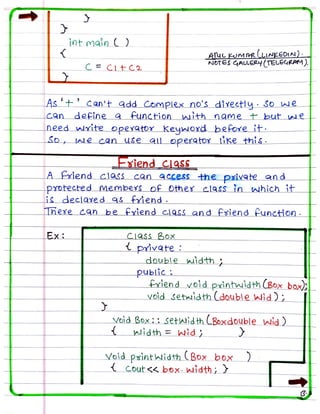 }
}
int main ( )
{
C = C1 + C2
}
ATUL KUMAR (LINKEDIN).
NOTES GALLERY (TELEGRAM).
As '+' can't add complex no's directly. So we
can define a function with name + but we
need write operator keyword before it.
So, we can use all operator like this.
Friend Class
A friend class can access the private and
protected members of other class in which it
is declared as friend.
There can be friend class and friend function.
Ex:
Class Box
{ private :
double width ;
public :
friend void printwidth (Box box);
void setwidth (double wid) ;
}
void Box :: setwidth (Boxdouble wid)
{ width = wid ; }
void printwidth (Box box )
{ cout << box. width ; }